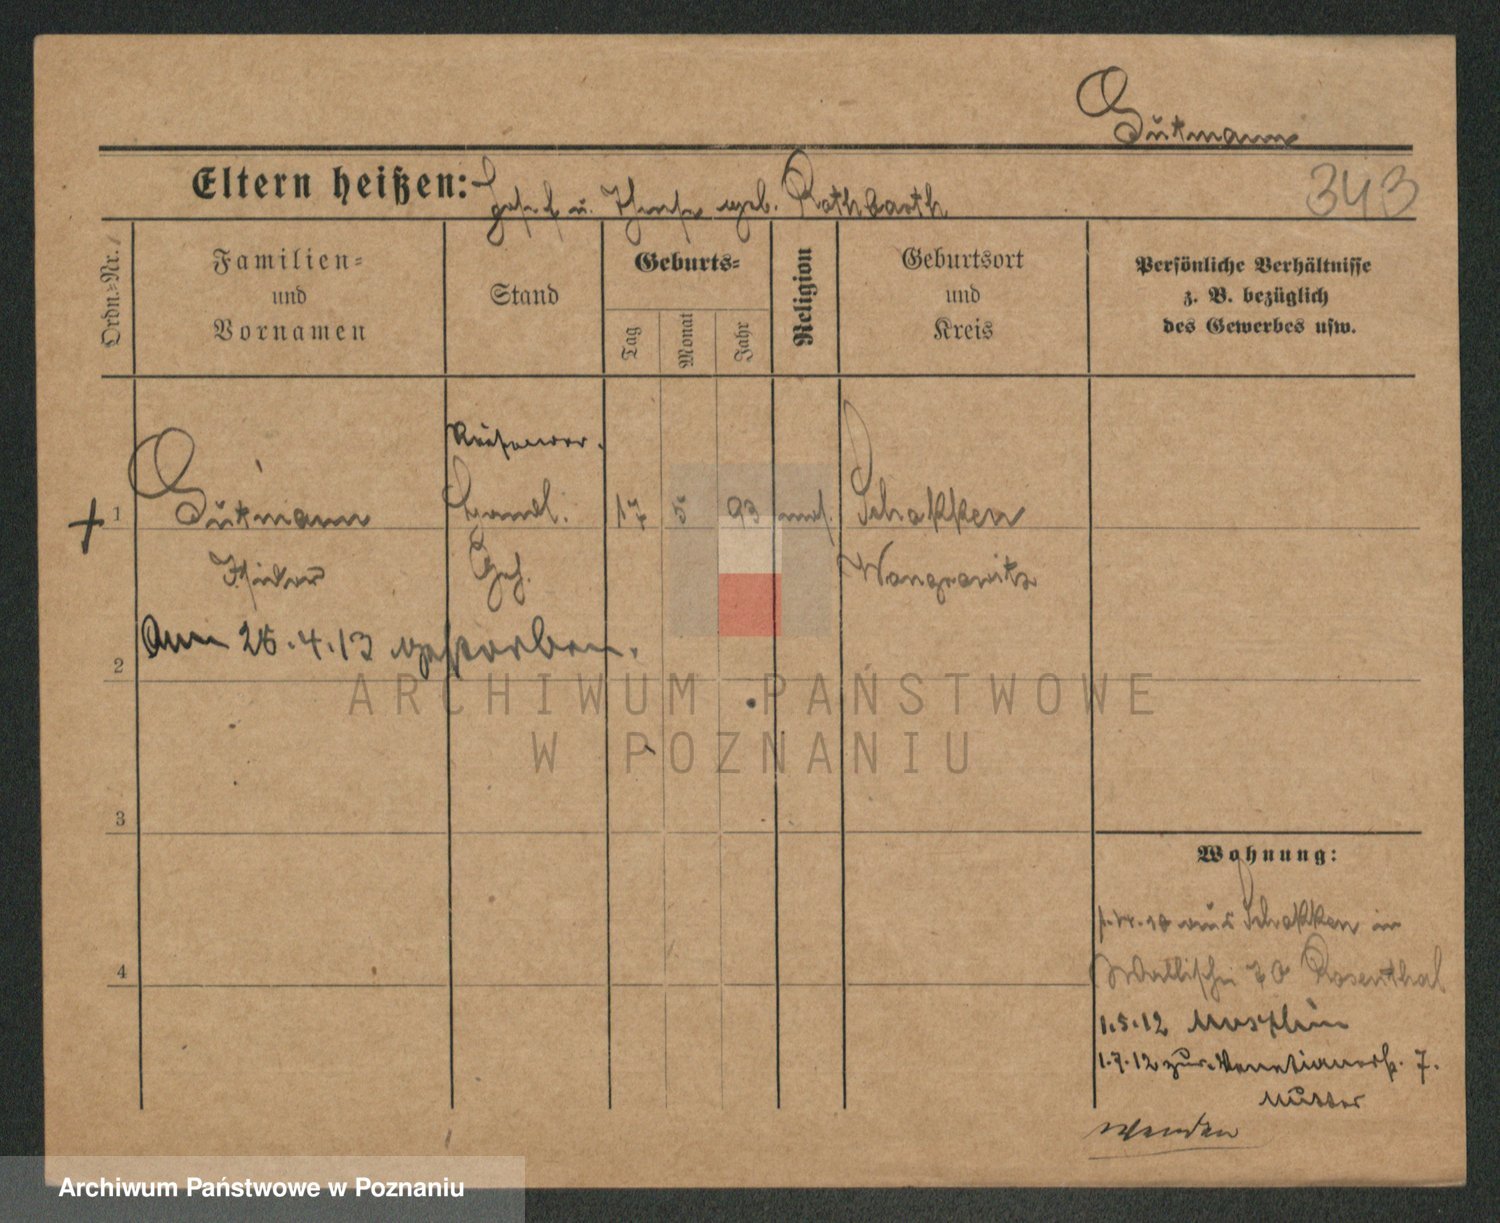 Gutmann
Eltern heißen: Josef u. geb. Rothbarth
343
Ordn.-Nr.
Familien-
und
Vornamen
Stand
Geburts-
Tag
Monat
Jahr
Religion
Geburtsort
und
Kreis
Persönliche Verhältnisse
z. B. bezüglich
des Gewerbes usw.
1 Gutmann Handl. 17 5 93 mos. Schokken
Isidor Geh. Wongrowitz
Am 26.4.13 gestorben.
2
3
4
Wohnung:
aus Schokken in
Wallischei 70 Rosenthal
1.5.12
1.7.12 zur Venetianerstr. 7.
Mutter
wenden
ARCHIWUM PAŃSTWOWE
W POZNANIU
Archiwum Państwowe w Poznaniu